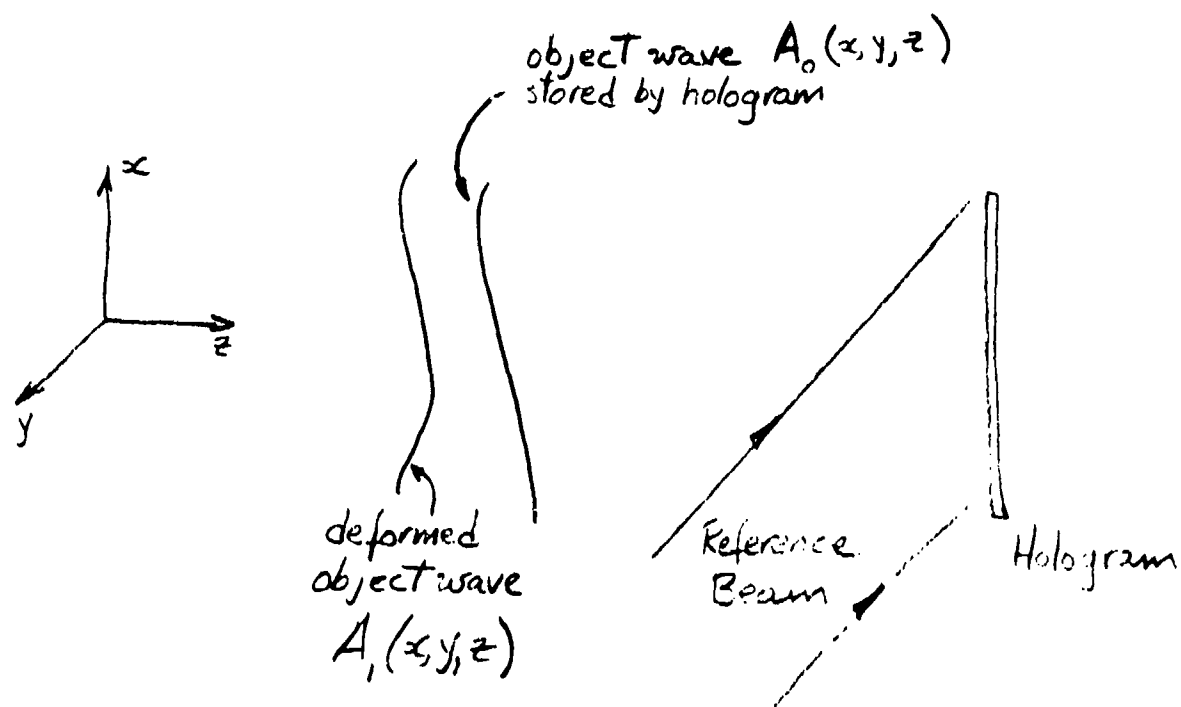 object wave A₀(x,y,z)
stored by hologram
x
z
y
deformed
object wave
A₁(x,y,z)
Reference
Beam
Hologram